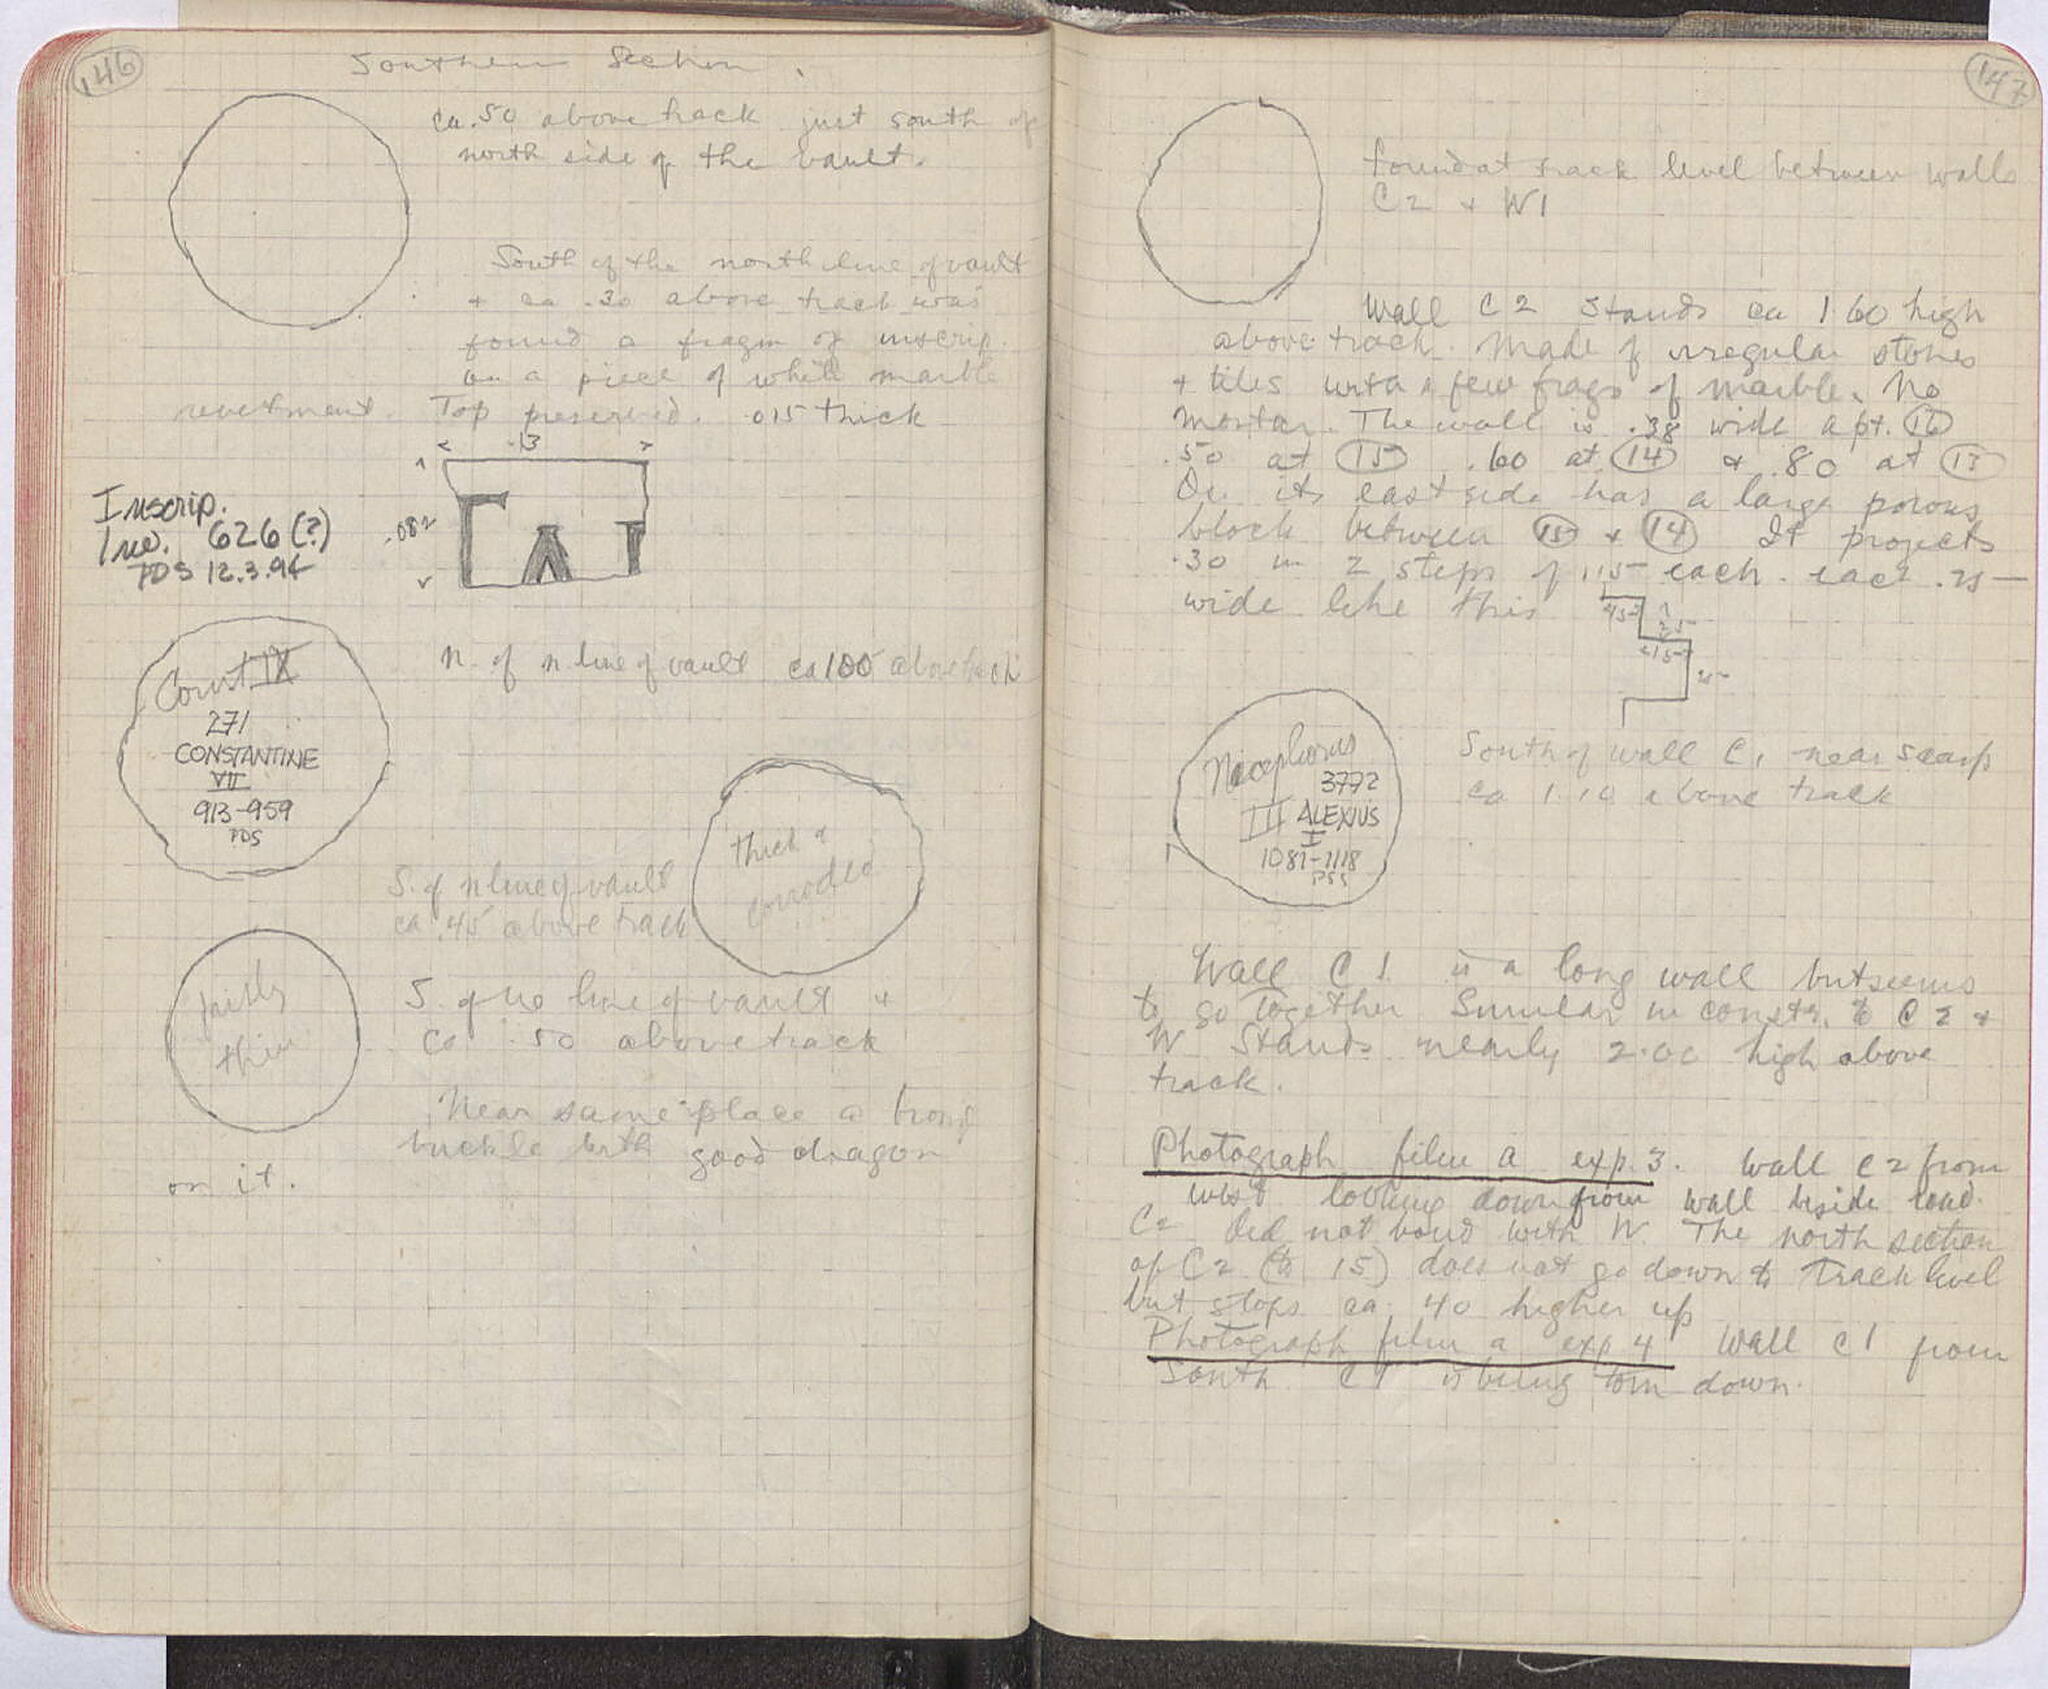 146
Southern Section.
ca .50 above track just south of
north side of the vault.
South of the north line of vault
+ ca .30 above track was
found a fragm of inscrip.
on a piece of white marble
revetment. Top preserved. .015 thick
.13
.082
Inscrip.
Inv. 626 (?)
PDS 12.3.94
Const IX
271
CONSTANTINE
VII
913-959
PDS
N. of n line of vault ca 1.00 above track
thick +
corroded
S. of n line of vault
ca .45 above track
fairly
thin
S. of no line of vault +
ca .50 above track
Near same place a bronz
buckle with good dragon
on it.
147
found at track level between walls
C2 + W1
Wall C2 stands ca 1.60 high
above track. Made of irregular stones
+ tiles with a few frags of marble. No
mortar. The wall is .38 wide a pt. 16
.50 at 15 .60 at 14 + .80 at 13
On its east side has a large porous
block between 15 + 14 It projects
.30 in 2 steps of .15 each. each .25
wide like this
.15
.25
.15
.25
Nicephorus
3772
III ALEXIUS
I
1081-1118
South of wall C1 near scarp
ca 1.10 above track
Wall C1 is a long wall but seems
to go together Similar in constr. to C2 +
W Stands nearly 2.00 high above
track.
Photograph film a exp. 3. Wall C2 from
west looking down from wall beside road.
C2 did not bond with W. The north section
of C2 (to 15) does not go down to track level
but stops ca .40 higher up
Photograph film a exp 4 Wall C1 from
South C1 is being torn down.